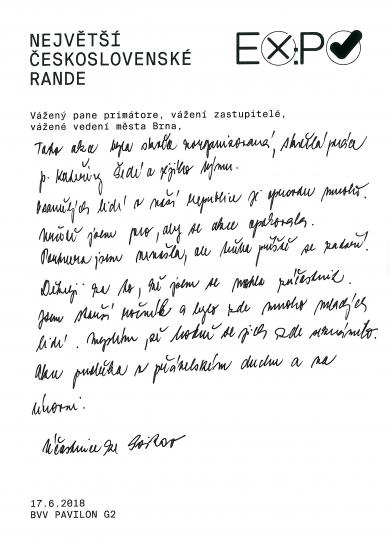 NEJVĚTŠÍ
ČESKOSLOVENSKÉ
RANDE
EXPO
Vážený pane primátore, vážení zastupitelé,
vážené vedení města Brna,
Tato akce byla skvěle zorganizovaná, skvělá práce
p. Kateřiny Šedé a jejího týmu.
Osamělých lidí v naší republice je opravdu mnoho.
Určitě jsem pro, aby se akce opakovala.
Partnera jsem nenašla, ale třeba příště se zadaří.
Děkuji za to, že jsem se mohla zúčastnit.
Jsem starší ročník a bylo zde mnoho mladých
lidí. Myslím, že hodně se jich zde seznámilo.
Akce proběhla v přátelském duchu a na
úrovni.
Účastnice ze
17.6.2018
BVV PAVILON G2